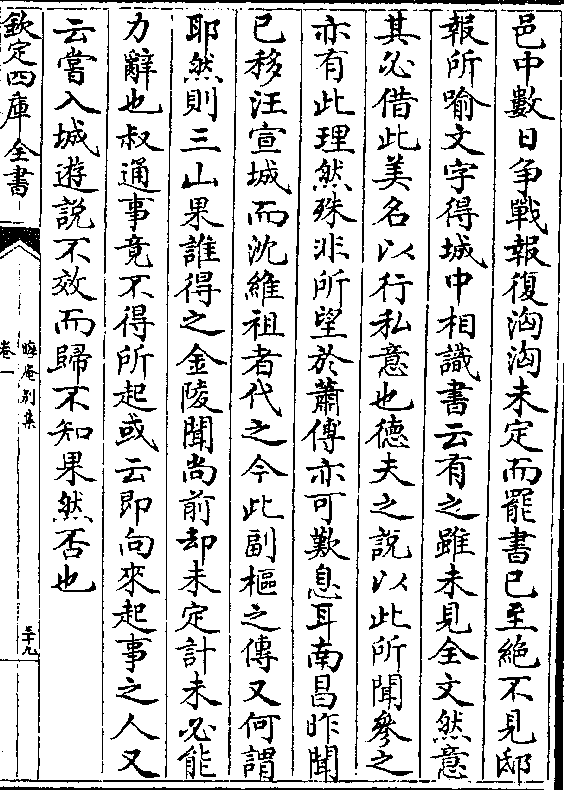 邑中數日争戰報復洶洶未定而罷書已至絶不見邸
報所喻文字得城中相識書云有之雖未見全文然意
其必借此美名以行私意也德夫之說以此所聞參之
亦有此理然殊非所望於蕭傅亦可歎息耳南昌昨聞
已移汪宣城而沈維祖者代之今此副樞之傳又何謂
耶然則三山果誰得之金陵聞尚前却未定計未必能
力辭也叔通事竟不得所起或云即向來起事之人又
云嘗入城遊說不效而歸不知果然否也
欽定四庫全書
晦庵別集
卷一
三十九